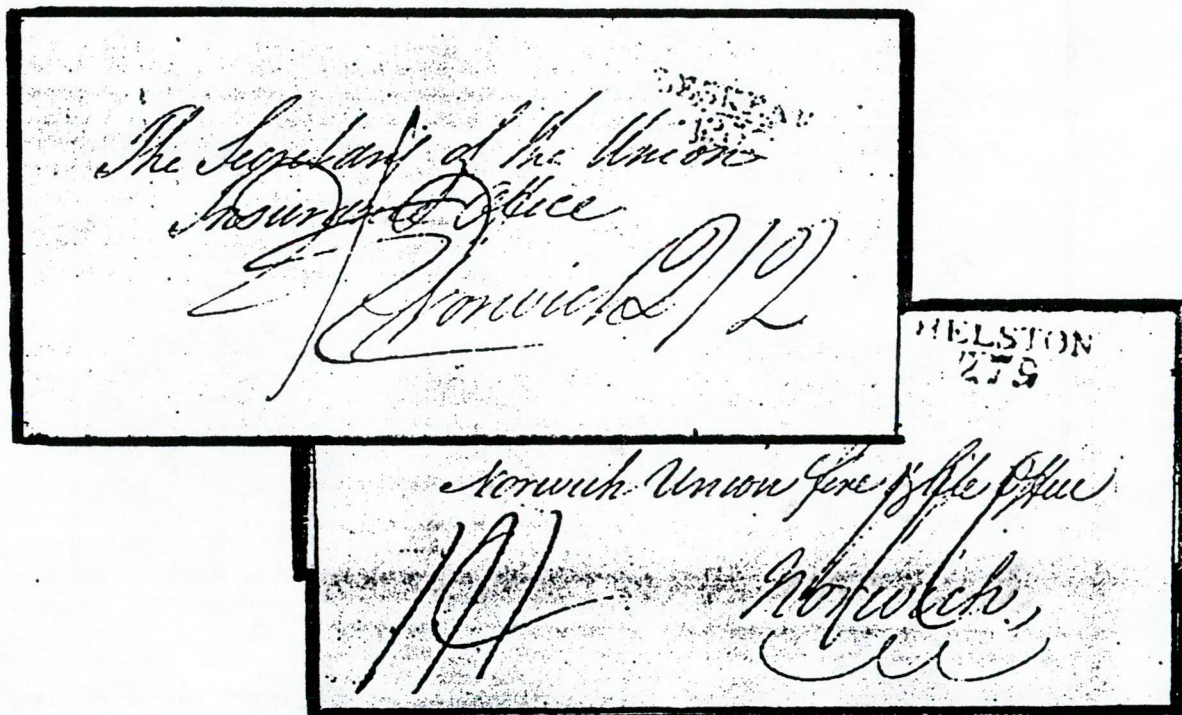 The Secretary of the Union
Insurance Office
Norwich
HELSTON
279
Norwich Union Fire & Life Office
Norwich,